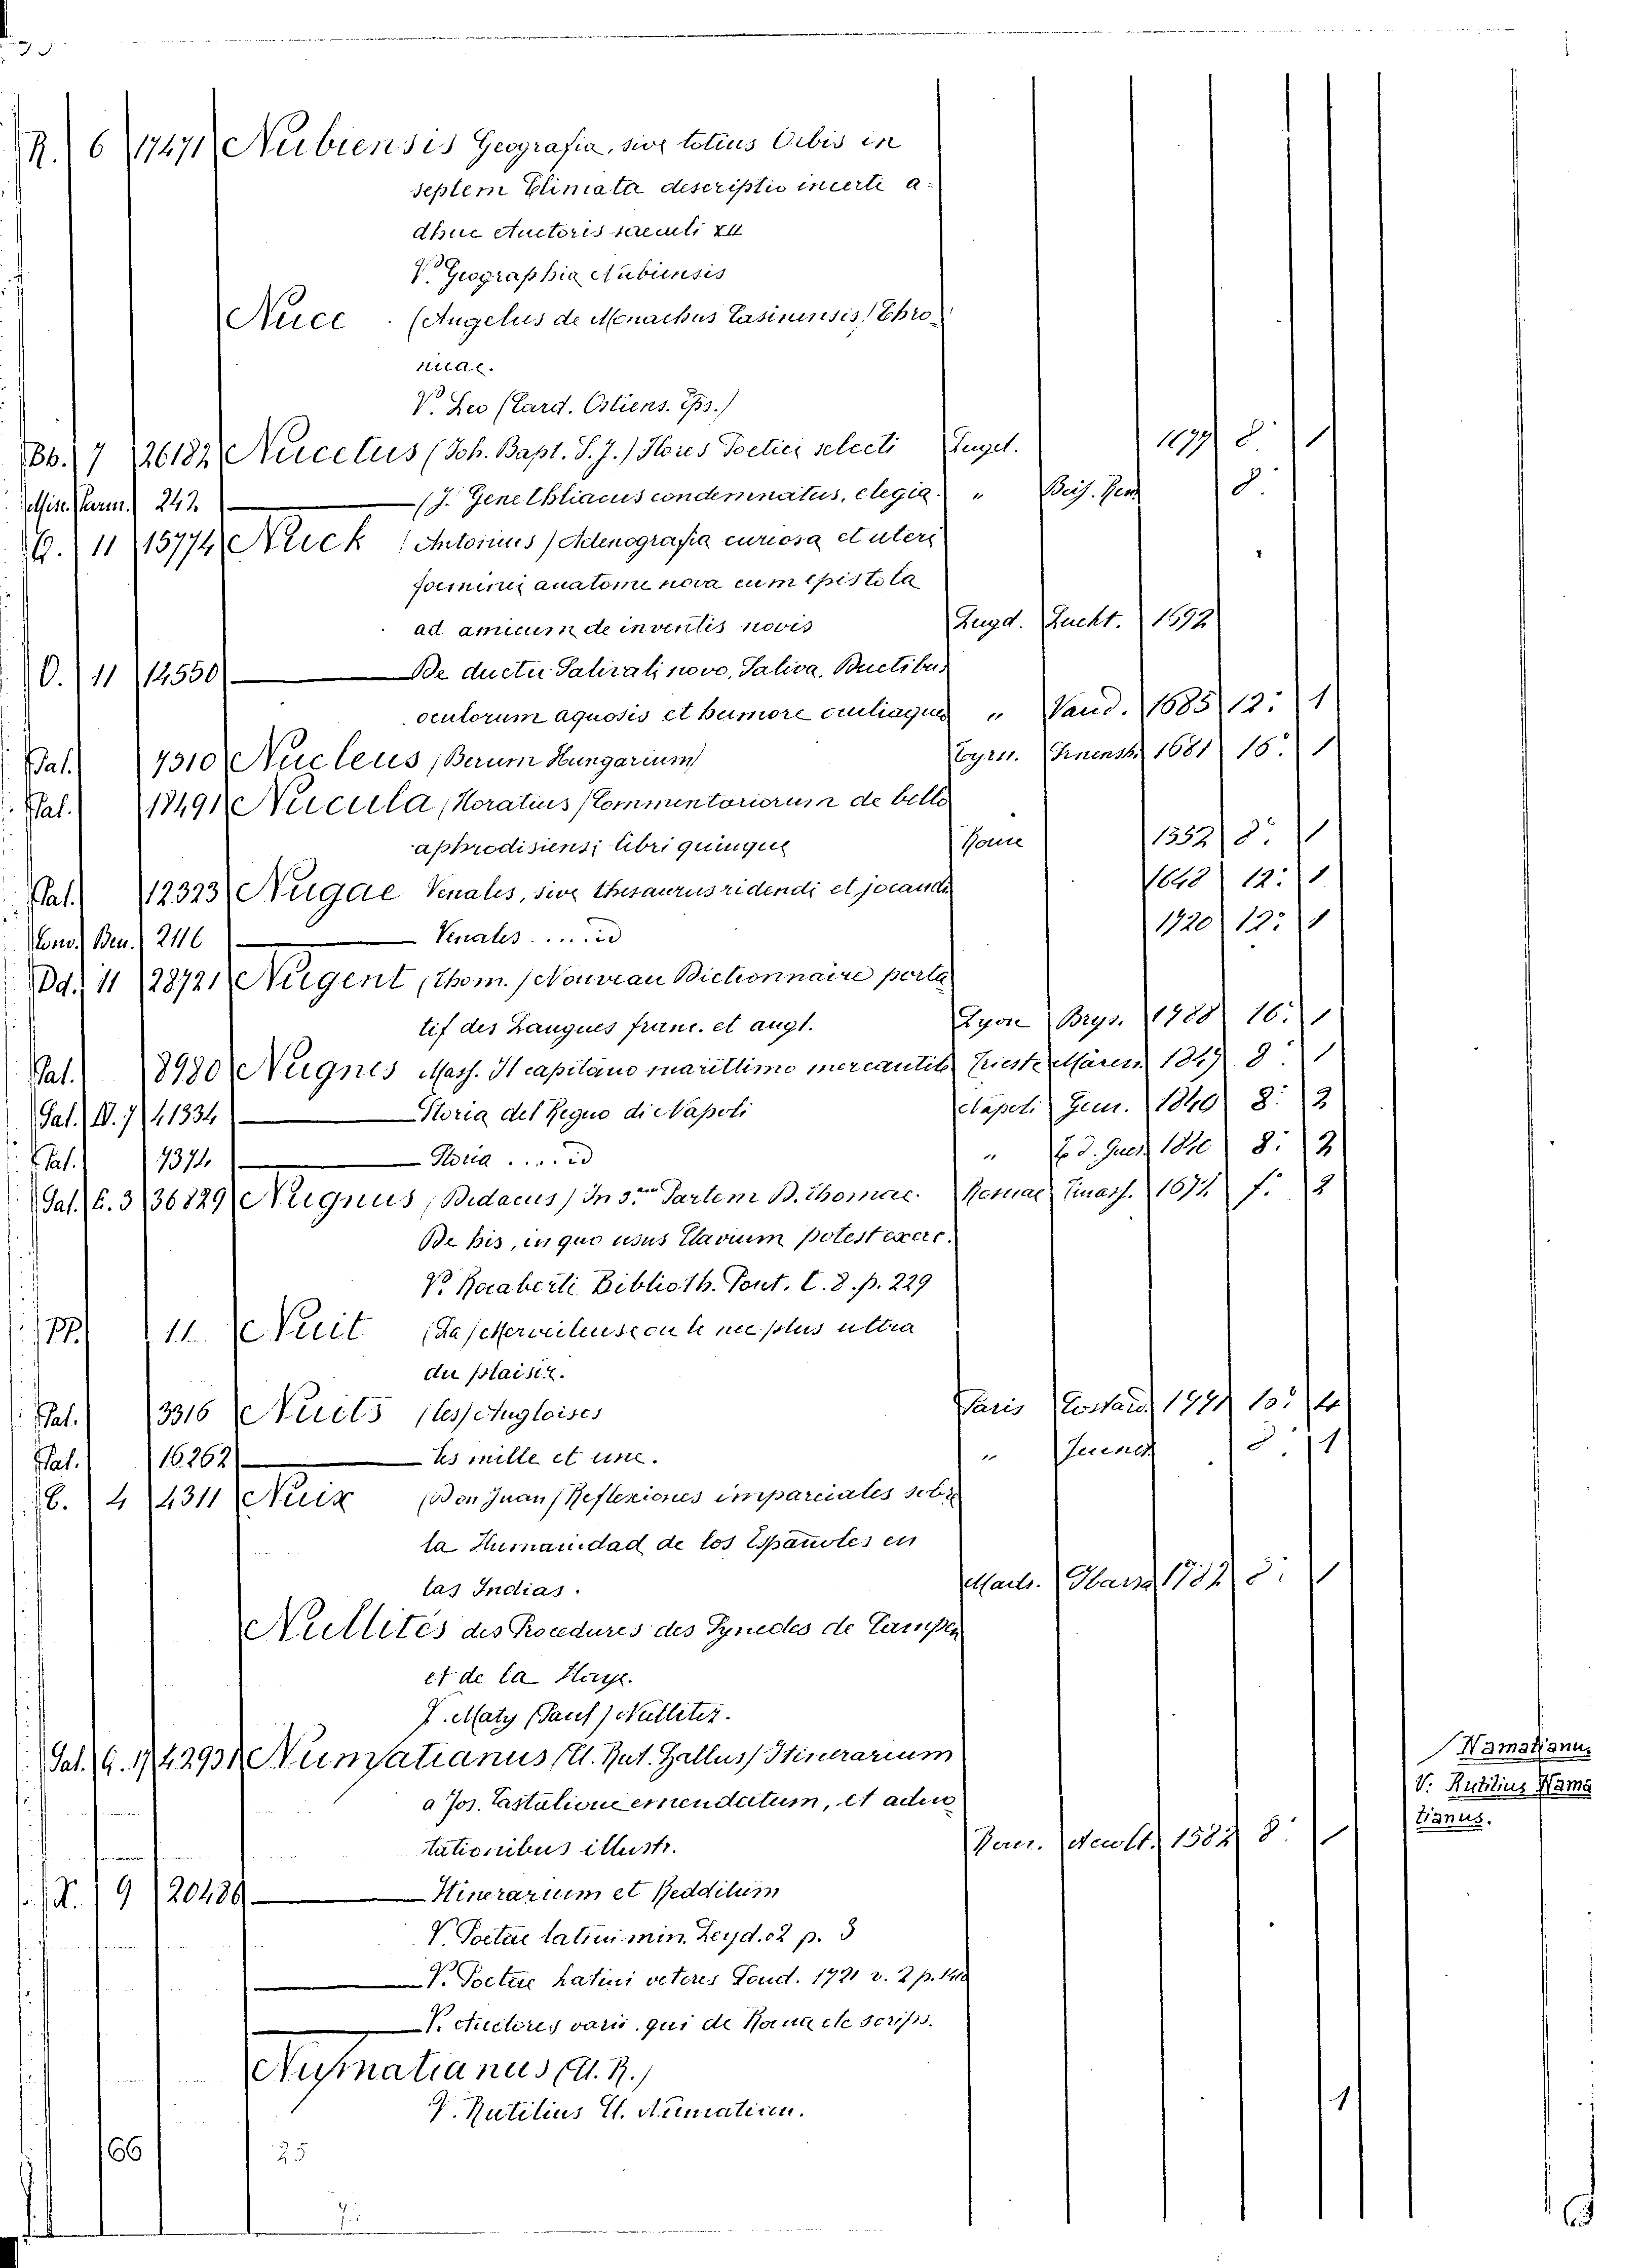 R. 6 17471 Nubiensis Geografia, sive totius Orbis in
septem Climata descriptio incerti a-
dhuc Auctoris saeculi XII
V. Geographia Nubiensis
Nuce (Angelus de Monachus Casinensis) Chro-
nicae.
V. Leo (Card. Ostiens. Eps.)
Bb. 7 26182 Nucetus (Joh. Bapt. S. J.) Flores Poetici selecti Lugd. 8. 1
Misc. Parm. 242 (J. Genethliacus condemnatus, elegia. " 8.
G. 11 15774 Nuck (Antonius) Adenografia curiosa et uteri
foeminei anatome nova cum epistola
ad amicum de inventis novis Lugd. Lucht. 1692
O. 11 14550 De ductu Salivali novo, Saliva, Ductibus
oculorum aquosis et humore oculiaqueo " Vand. 1685 12. 1
Pal. 7310 Nucleus (Rerum Hungarium) Tyrn. 1681 16. 1
Pal. 17491 Nucula (Horatius) Commentariorum de bello
aphrodisiensi libri quinque Rome 8. 1
Pal. 12323 Nugae Venales, sive thesaurus ridendi et jocandi 1648 12. 1
Conv. Ben. 2116 Venales ..... id 1720 12. 1
Dd. 11 28721 Nugent (Thom.) Nouveau Dictionnaire porta
tif des Langues franc. et angl. Lyon Brys. 1788 16. 1
Pal. 8980 Nugnes Mass. Il capitano marittimo mercantile Trieste Maren. 1847 8. 1
Gal. N. 7 41334 Storia del Regno di Napoli Napoli Gem. 1840 8. 2
Pal. 7374 Storia ..... id " 1840 8. 2
Gal. E. 3 36829 Nugnus (Didacus) In 3.am Partem D. Thomae. Romae 1674 f. 2
De his, in quo usus Clavium potest exerc.
V. Rocaberti Biblioth. Pont. t. 8. p. 229
PP. 11 Nuit (La) Merveilleuse ou le nec plus ultra
du plaisir.
Pal. 3316 Nuits (les) Angloises Paris Costard 10. 4
Pal. 16262 les mille et une. " 8. 1
E. 4 4311 Nuix (Don Juan) Reflexiones imparciales sobre
la Humanidad de los Españoles en
las Indias. Madr. Ibarra 1782 8. 1
Nullités des Procedures des Synodes de Campen
et de la Haye.
V. Maty (Paul) Nullitez.
Gal. G. 1 42931 Numatianus (Cl. Rut. Gallus) Itinerarium
a Jos. Castalione emendatum, et adno
tationibus illustr. Rom. 1582 8. 1
N. 9 20486 Itinerarium et Redditum
V. Poetae latini min. Leyd. 02 p. 3
V. Poetae Latini veteres Lond. 1721 v. 2 p. 1410
V. Auctores varii qui de Roma etc scrips.
Numatianus (Cl. R.)
V. Rutilius Cl. Numatian.
Namatianus
V. Rutilius Nama
tianus.
1
66 25
7